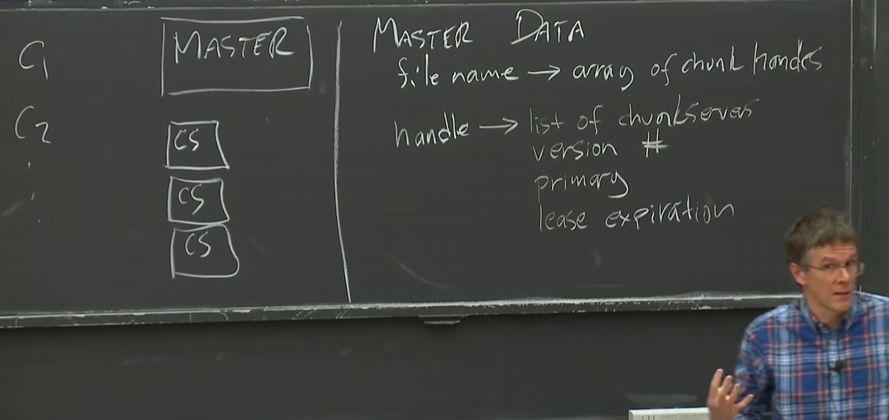 C1
C2
MASTER
CS
CS
CS
MASTER DATA
file name → array of chunk handes
handle → list of chunkservers
version #
primary
lease expiration